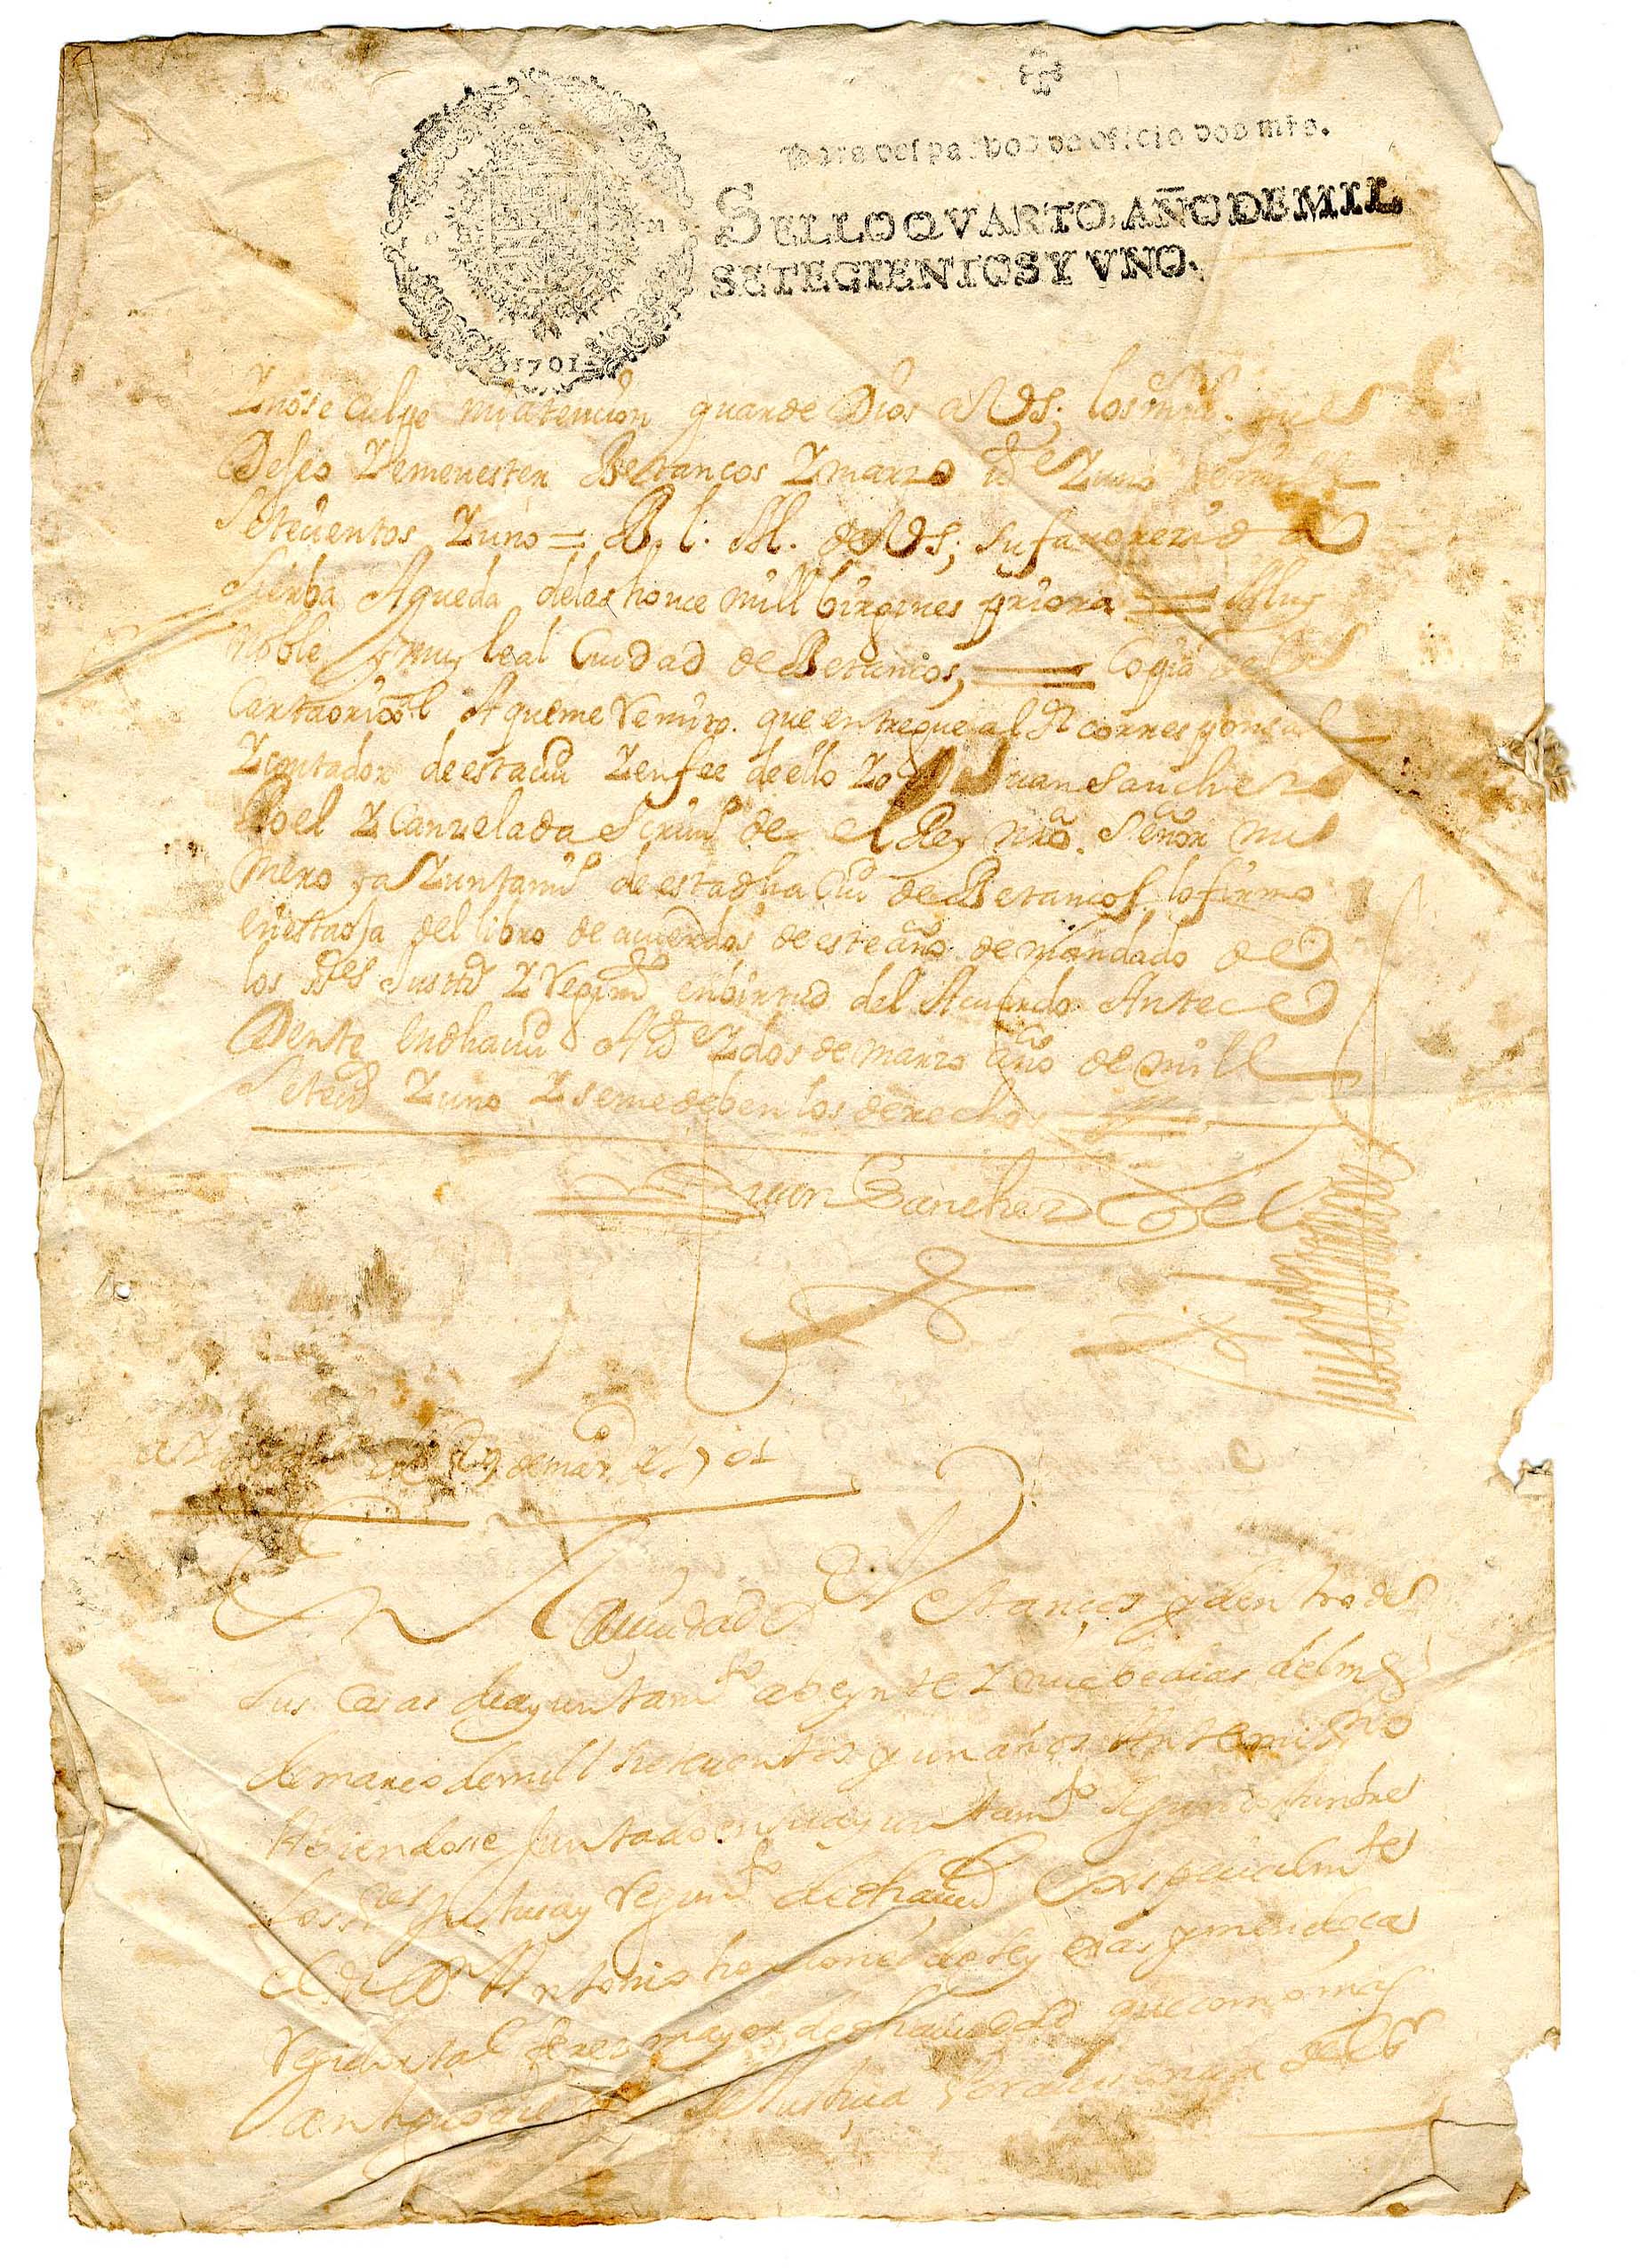 Para despachos de oficio dos mrs.
SELLO QVARTO, AÑO DE MIL
SETECIENTOS Y VNO.
1701
Y nose culpe mi atencion guarde Dios a VS; los m.s a.s que
Deseo Y emenester Betanços Y marzo Y uno de mill
Setecientos Y uno = B. l. M. de VS; su favorezida
Sierba Agueda delas honce mill birgines priora = Muy
Noble y muy leal Ciudad de Betanços, = Copia de la
Carta orixl. A que me remito. que entregue al Sr corresponsal
Y contador de esta ciud Y enfee de ello Yo Juan Sanchez
Roel Y Canzelada Scriuno de el Rey nro. Señor nu
mero y aYuntamto de esta dha Ciud de Betanços lo firmo
en esta oja del libro de acuerdos de este año de mandado de
los sres Justica Y Regimto en birtud del Acuerdo Antece
Dente en dha ciud A Y dos de marzo año de mill
Setecs Y uno Y seme deben los derechos =
Juan Sanchez Roel
de 29 de mar.o de 1701
En La ciudad de Betanços y dentro de
sus casas de ayuntamto a beynte Y nuebe dias del mes
de março de mill setecientos y un años Ante mi sno
Abiendose Juntado en su ayuntamto segun costumbre
Los sres Justicia y Regimto de dha ciud Especialmte
el Sr Dn Antonio
Regidor mayor de dha ciudad que como mas
antiguo la Justicia